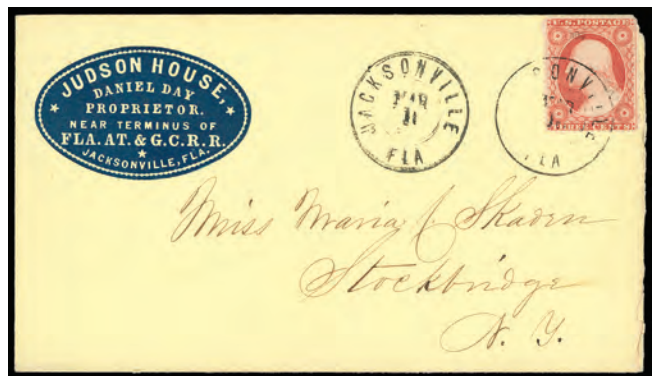 JUDSON HOUSE,
DANIEL DAY
PROPRIETOR.
NEAR TERMINUS OF
FLA. AT. & G. C. R. R.
JACKSONVILLE, FLA.
JACKSONVILLE
MAR
11
FLA
U.S. POSTAGE
SONVILLE
FLA
CENTS
Miss Maria
Stockbridge
N. Y.